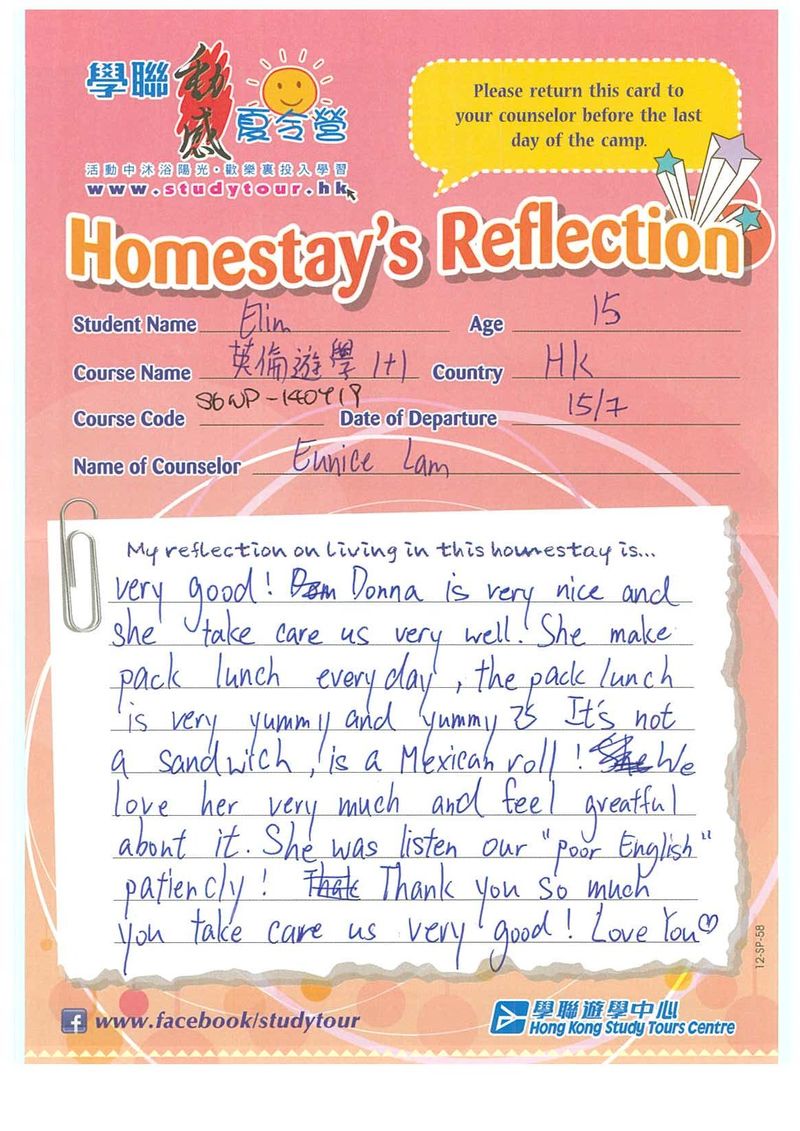 學聯 動感 夏令營
活動中沐浴陽光・歡樂裏投入學習
www.studytour.hk
Please return this card to
your counselor before the last
day of the camp.
Homestay's Reflection
Student Name Elim Age 15
Course Name 英倫遊學 1+1 Country HK
Course Code SGWP-140719 Date of Departure 15/7
Name of Counselor Eunice Lam
My reflection on living in this homestay is...
very good! Donna is very nice and
she take care us very well! She make
pack lunch everyday, the pack lunch
is very yummy and yummy It's not
a sandwich, is a Mexican roll! We
love her very much and feel greatful
about it. She was listen our "poor English"
patiencly! Thank you so much
you take care us very good! Love You♡
12-SP-58
www.facebook/studytour
學聯遊學中心
Hong Kong Study Tours Centre